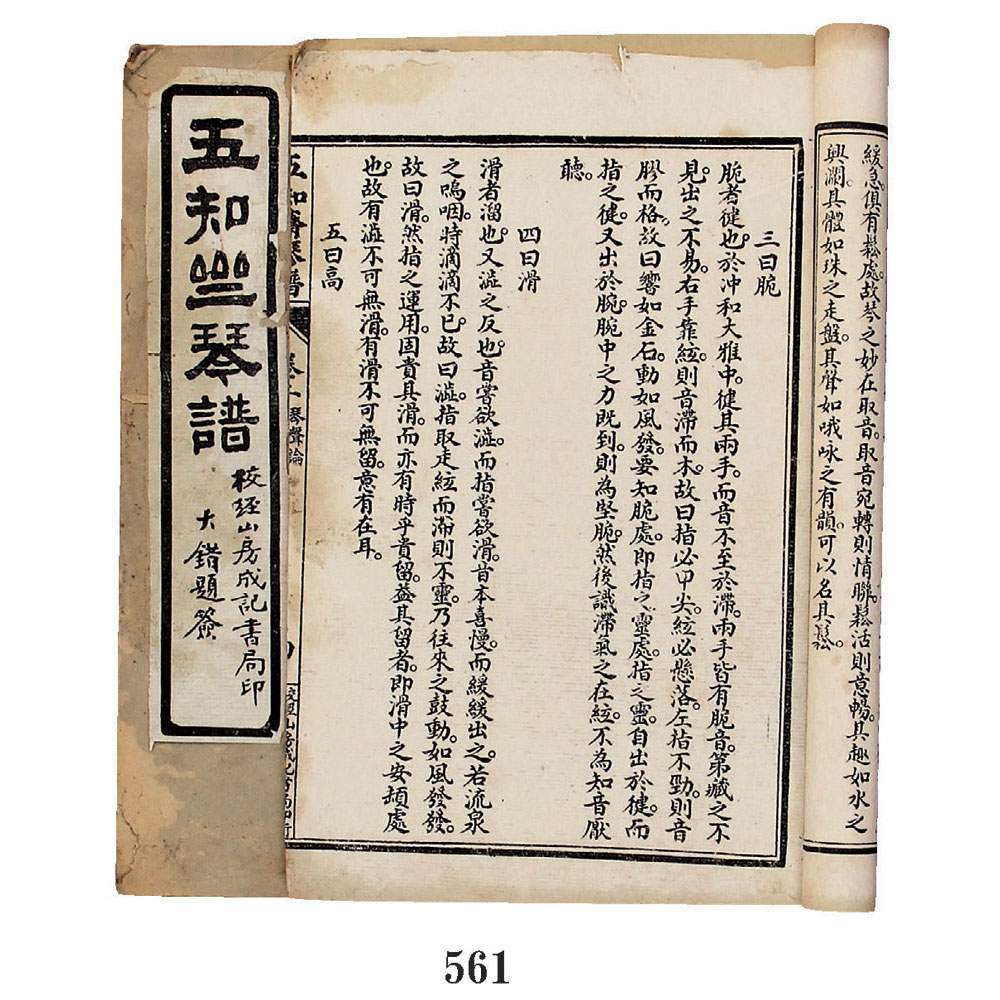 緩急。俱有鬆處。故琴之妙在取音。取音宛轉則情聯。鬆活則意暢。其趣如水之
興瀾。其體如珠之走盤。其聲如哦咏之有韻。可以名其鬆。
三曰脆
脆者徤也。於冲和大雅中。徤其兩手。而音不至於滯。兩手皆有脆音。第藏之不
見。出之不易。右手靠絃則音滯而木。故曰指必甲尖。絃必懸落。左指不勁。則音
膠而格。故曰響如金石。動如風發。要知脆處。即指之靈處。指之靈自出於徤。而
指之徤。又出於腕。腕中之力既到。則為堅脆。然後識滯氣之在絃。不為知音厭
聽。
四曰滑
滑者溜也。又澁之反也。音嘗欲澁。而指嘗欲滑。音本喜慢。而緩緩出之。若流泉
之嗚咽。時滴滴不已。故曰澁。指取走絃而滯則不靈。乃往來之鼓動。如風發發。
故曰滑。然指之運用。固貴其滑。而亦有時乎貴留。葢其留者。即滑中之安頓處
也。故有澁不可無滑。有滑不可無留。意有在耳。
五曰高
五知齋琴譜 卷一 琴聲論
五知亝琴譜
校經山房成記書局印
大錯題簽
561